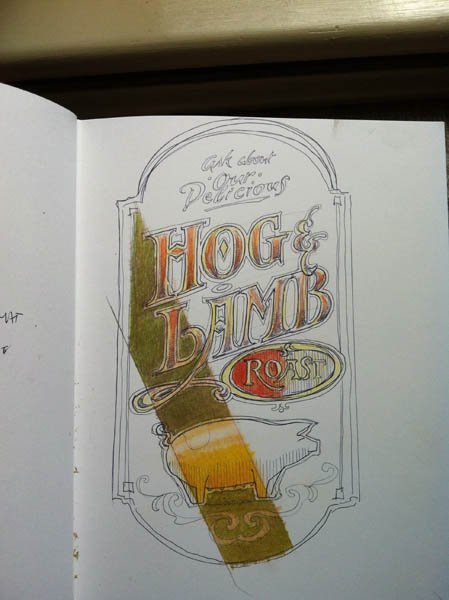 Ask about
our
Delicious
HOG &
LAMB
ROAST